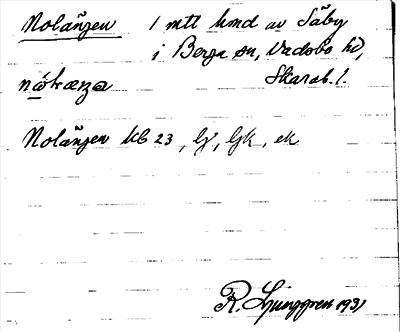 Nolängen 1 mtl hmd av Säby
i Berga sn, Vadsbo hd,
Skarab. l.
Nolängen kb 23, Gk, ek
R. Ljunggren 1931